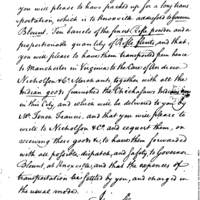 you will please to have packed up for a long trans
portation, which is to Knoxville addressed to Governor
Blount. Ten barrels of the finest Rifle powder and a
proportionable quantity of Rifle flints, and that,
you will please to have them transported from hence
to Manchester in Virginia to the care of Andrew
Nicholson & Co Merchants, together with all the
Indian goods furnished the Chickasaws
in this City, and which will be delivered to you by
Mr Tench Francis, and that you will please to
write to Nicholson & Co and request them, on
receiving these goods &c, to have them forwarded
with all possible, dispatch, and safety to Governor
Blount, at Knoxville, and that the expences of
transportation be settled by you, and charged in
the usual modes.